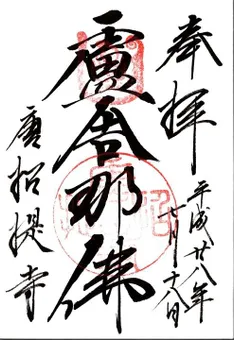 奉拝
平成廿八年
七月十八日
盧舎那佛
唐招提寺